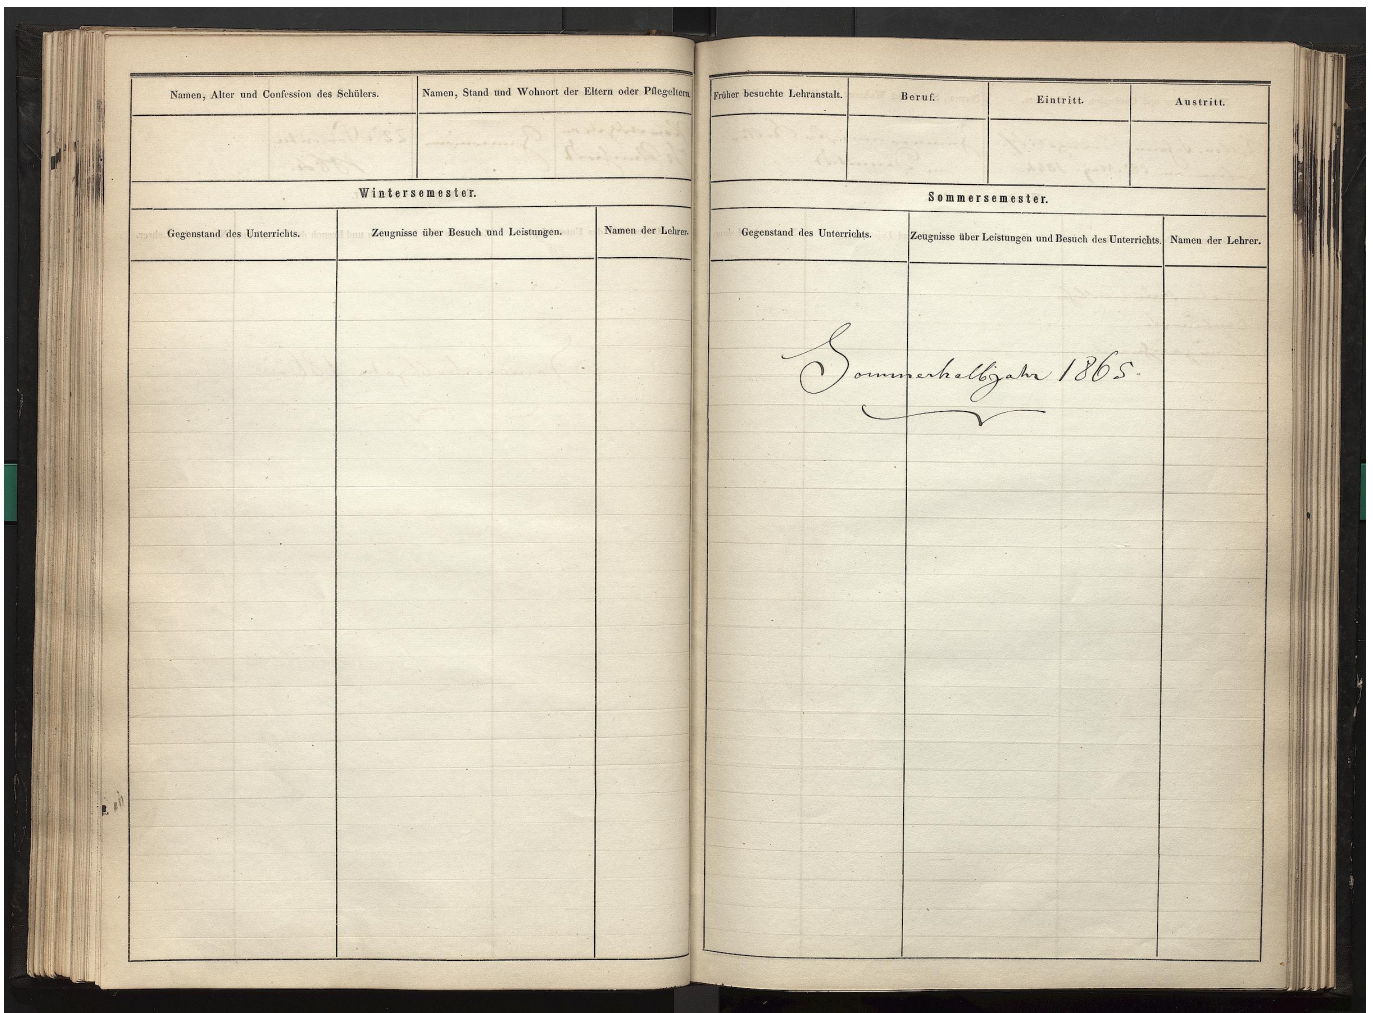 Namen, Alter und Confession des Schülers.
Namen, Stand und Wohnort der Eltern oder Pflegeltern
Wintersemester.
Gegenstand des Unterrichts.
Zeugnisse über Besuch und Leistungen.
Namen der Lehrer.
Früher besuchte Lehranstalt.
Beruf.
Eintritt.
Austritt.
Sommersemester.
Gegenstand des Unterrichts.
Zeugnisse über Leistungen und Besuch des Unterrichts.
Namen der Lehrer.
Sommerhalbjahr 1865.